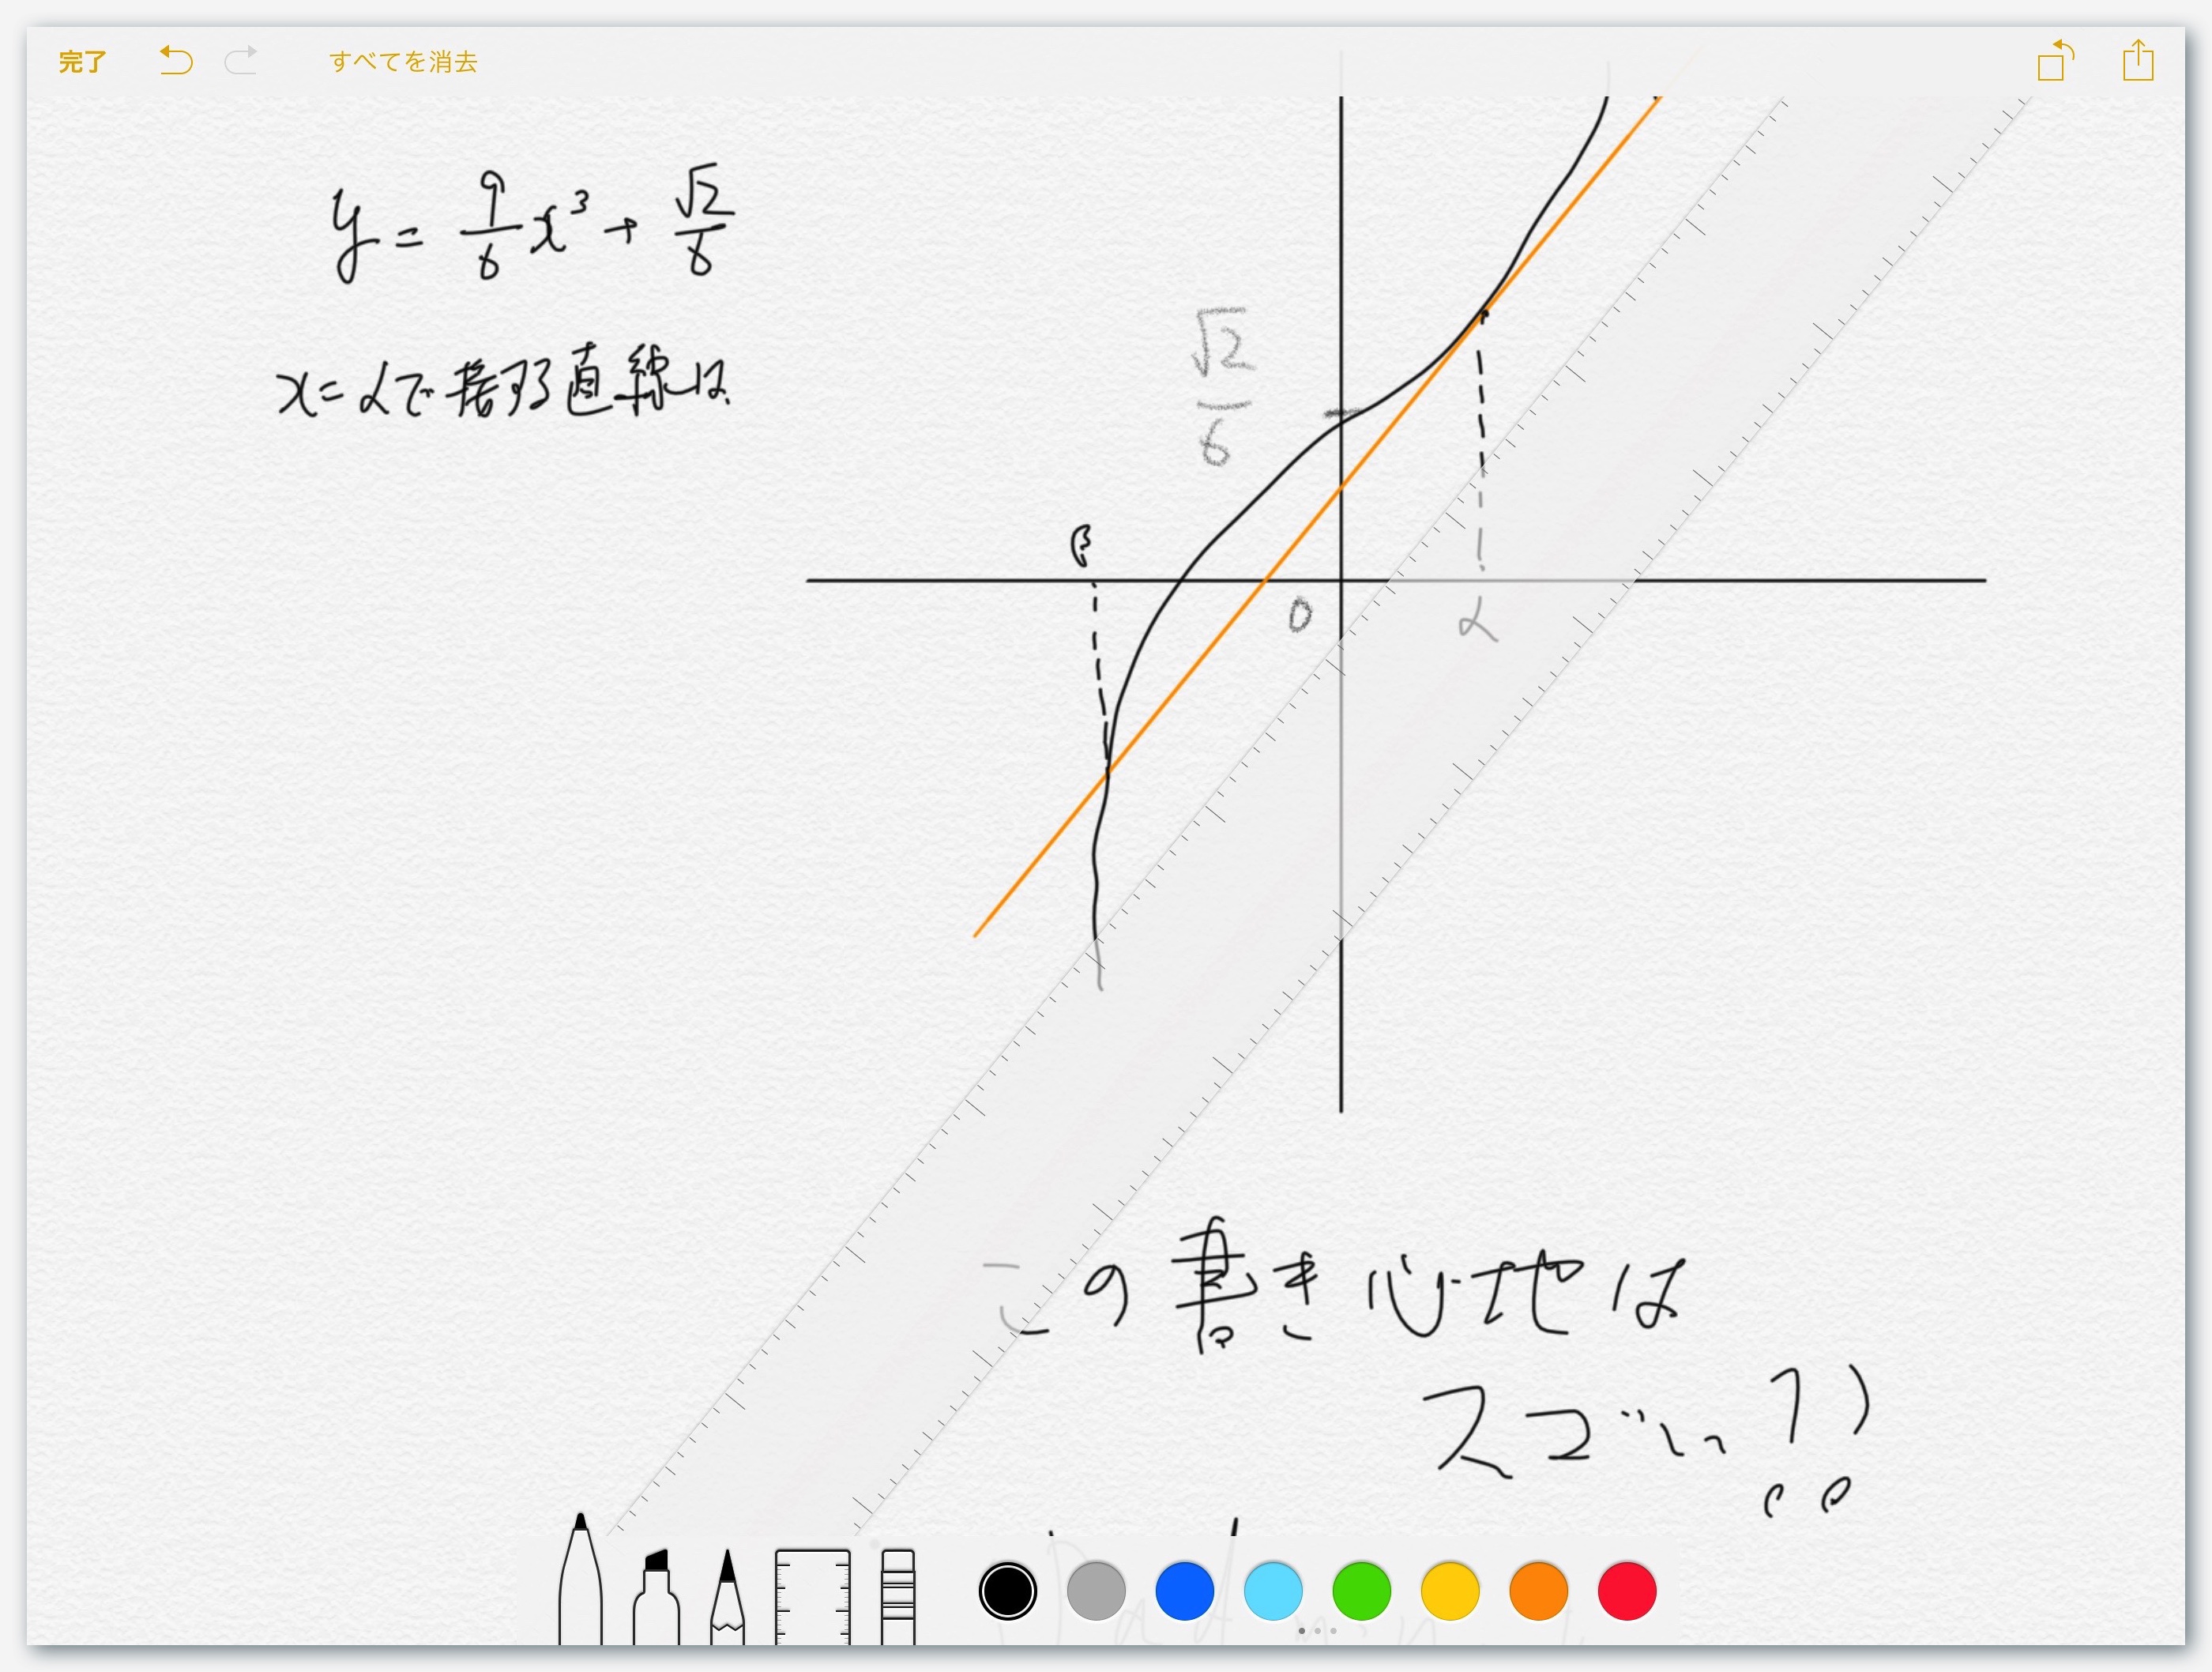 完了 すべてを消去
y = 9/6 x³ + √2/6
x=αで接する直線は、
√2/6
β
0
α
この書き心地は
スゴい、、!!